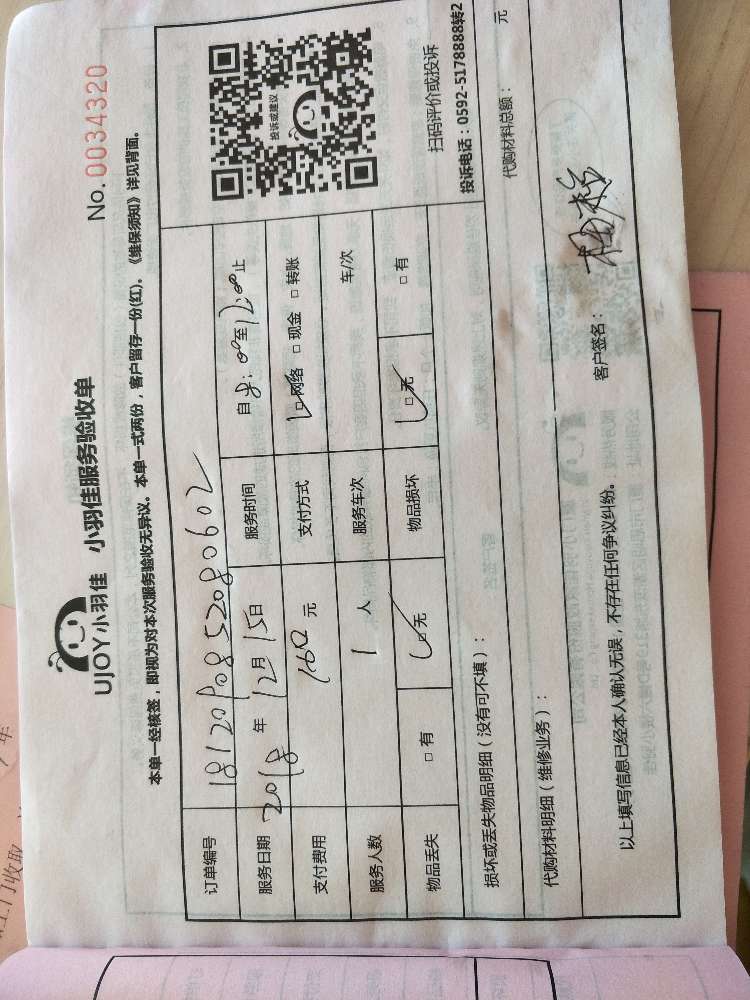 UJOY小羽佳 小羽佳服务验收单
No. 0034320
本单一经核签，即视为对本次服务验收无异议。本单一式两份，客户留存一份(红)。《维保须知》详见背面。
订单编号 1812090852080602
服务日期 2018 年 12 月 15 日 服务时间 自 8:00 至 12:00 止
支付费用 160 元 支付方式 ☑网络 □现金 □转账
服务人数 1 人 服务车次 车/次
物品丢失 □有 ☑无 物品损坏 ☑无 □有
投诉或建议
扫码评价或投诉
投诉电话：0592-5178888转2
损坏或丢失物品明细（没有可不填）：
代购材料明细（维修业务）： 代购材料总额： 元
以上填写信息已经本人确认无误，不存在任何争议纠纷。 客户签名：
上门收取
年